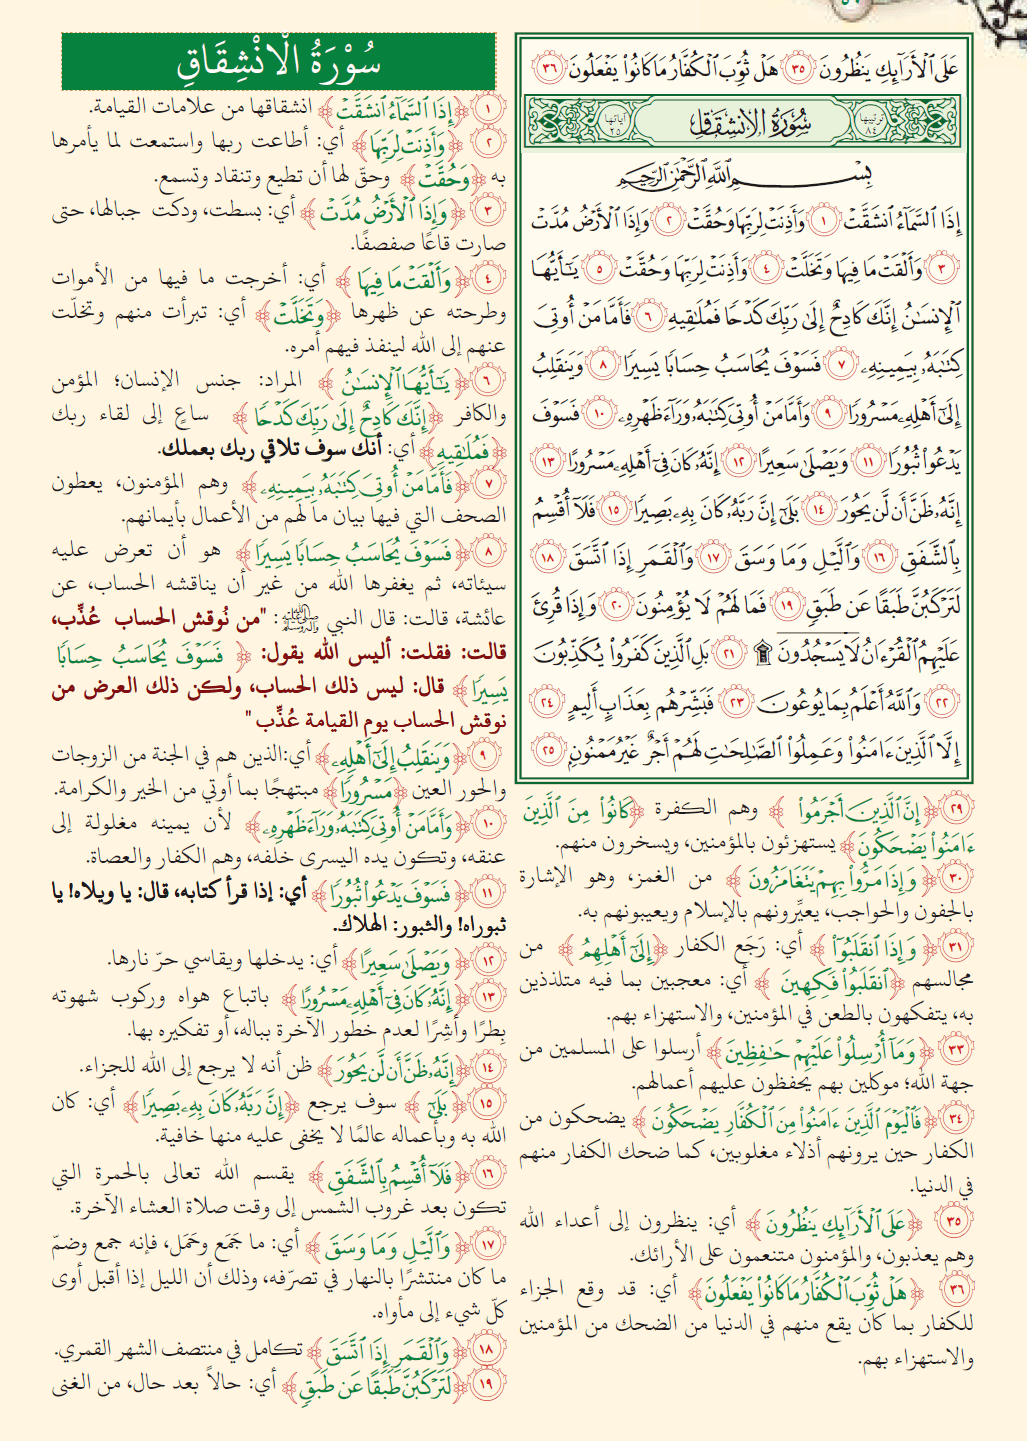 عَلَى ٱلْأَرَآئِكِ يَنظُرُونَ ٣٥ هَلْ ثُوِّبَ ٱلْكُفَّارُ مَا كَانُوا۟ يَفْعَلُونَ ٣٦
ترتيبها ٨٤ سُورَةُ الانْشِقَاقِ آياتها ٢٥
بِسْمِ ٱللَّهِ ٱلرَّحْمَٰنِ ٱلرَّحِيمِ
إِذَا ٱلسَّمَآءُ ٱنشَقَّتْ ١ وَأَذِنَتْ لِرَبِّهَا وَحُقَّتْ ٢ وَإِذَا ٱلْأَرْضُ مُدَّتْ
٣ وَأَلْقَتْ مَا فِيهَا وَتَخَلَّتْ ٤ وَأَذِنَتْ لِرَبِّهَا وَحُقَّتْ ٥ يَـٰٓأَيُّهَا
ٱلْإِنسَـٰنُ إِنَّكَ كَادِحٌ إِلَىٰ رَبِّكَ كَدْحًا فَمُلَـٰقِيهِ ٦ فَأَمَّا مَنْ أُوتِىَ
كِتَـٰبَهُۥ بِيَمِينِهِۦ ٧ فَسَوْفَ يُحَاسَبُ حِسَابًا يَسِيرًا ٨ وَيَنقَلِبُ
إِلَىٰٓ أَهْلِهِۦ مَسْرُورًا ٩ وَأَمَّا مَنْ أُوتِىَ كِتَـٰبَهُۥ وَرَآءَ ظَهْرِهِۦ ١٠ فَسَوْفَ
يَدْعُوا۟ ثُبُورًا ١١ وَيَصْلَىٰ سَعِيرًا ١٢ إِنَّهُۥ كَانَ فِىٓ أَهْلِهِۦ مَسْرُورًا ١٣
إِنَّهُۥ ظَنَّ أَن لَّن يَحُورَ ١٤ بَلَىٰٓ إِنَّ رَبَّهُۥ كَانَ بِهِۦ بَصِيرًا ١٥ فَلَآ أُقْسِمُ
بِٱلشَّفَقِ ١٦ وَٱلَّيْلِ وَمَا وَسَقَ ١٧ وَٱلْقَمَرِ إِذَا ٱتَّسَقَ ١٨
لَتَرْكَبُنَّ طَبَقًا عَن طَبَقٍ ١٩ فَمَا لَهُمْ لَا يُؤْمِنُونَ ٢٠ وَإِذَا قُرِئَ
عَلَيْهِمُ ٱلْقُرْءَانُ لَا يَسْجُدُونَ ۩ ٢١ بَلِ ٱلَّذِينَ كَفَرُوا۟ يُكَذِّبُونَ
٢٢ وَٱللَّهُ أَعْلَمُ بِمَا يُوعُونَ ٢٣ فَبَشِّرْهُم بِعَذَابٍ أَلِيمٍ ٢٤
إِلَّا ٱلَّذِينَ ءَامَنُوا۟ وَعَمِلُوا۟ ٱلصَّـٰلِحَـٰتِ لَهُمْ أَجْرٌ غَيْرُ مَمْنُونٍ ٢٥
٢٩ ﴿إِنَّ ٱلَّذِينَ أَجْرَمُوا۟﴾ وهم الكفرة ﴿كَانُوا۟ مِنَ ٱلَّذِينَ
ءَامَنُوا۟ يَضْحَكُونَ﴾ يستهزئون بالمؤمنين، ويسخرون منهم.
٣٠ ﴿وَإِذَا مَرُّوا۟ بِهِمْ يَتَغَامَزُونَ﴾ من الغمز، وهو الإشارة
بالجفون والحواجب، يعيِّرونهم بالإسلام ويعيبونهم به.
٣١ ﴿وَإِذَا ٱنقَلَبُوٓا۟﴾ أي: رَجَع الكفار ﴿إِلَىٰٓ أَهْلِهِمُ﴾ من
مجالسهم ﴿ٱنقَلَبُوا۟ فَكِهِينَ﴾ أي: معجبين بما فيه متلذذين
به، يتفكهون بالطعن في المؤمنين، والاستهزاء بهم.
٣٣ ﴿وَمَآ أُرْسِلُوا۟ عَلَيْهِمْ حَـٰفِظِينَ﴾ أرسلوا على المسلمين من
جهة الله؛ موكلين بهم يحفظون عليهم أعمالهم.
٣٤ ﴿فَٱلْيَوْمَ ٱلَّذِينَ ءَامَنُوا۟ مِنَ ٱلْكُفَّارِ يَضْحَكُونَ﴾ يضحكون من
الكفار حين يرونهم أذلاء مغلوبين، كما ضحك الكفار منهم
في الدنيا.
٣٥ ﴿عَلَى ٱلْأَرَآئِكِ يَنظُرُونَ﴾ أي: ينظرون إلى أعداء الله
وهم يعذبون، والمؤمنون متنعمون على الأرائك.
٣٦ ﴿هَلْ ثُوِّبَ ٱلْكُفَّارُ مَا كَانُوا۟ يَفْعَلُونَ﴾ أي: قد وقع الجزاء
للكفار بما كان يقع منهم في الدنيا من الضحك من المؤمنين
والاستهزاء بهم.
سُوْرَةُ الْانْشِقَاقِ
١ ﴿إِذَا ٱلسَّمَآءُ ٱنشَقَّتْ﴾ انشقاقها من علامات القيامة.
٢ ﴿وَأَذِنَتْ لِرَبِّهَا﴾ أي: أطاعت ربها واستمعت لما يأمرها
به ﴿وَحُقَّتْ﴾ وحقّ لها أن تطيع وتنقاد وتسمع.
٣ ﴿وَإِذَا ٱلْأَرْضُ مُدَّتْ﴾ أي: بسطت، ودكت جبالها، حتى
صارت قاعًا صفصفًا.
٤ ﴿وَأَلْقَتْ مَا فِيهَا﴾ أي: أخرجت ما فيها من الأموات
وطرحته عن ظهرها ﴿وَتَخَلَّتْ﴾ أي: تبرأت منهم وتخلّت
عنهم إلى الله لينفذ فيهم أمره.
٦ ﴿يَـٰٓأَيُّهَا ٱلْإِنسَـٰنُ﴾ المراد: جنس الإنسان؛ المؤمن
والكافر ﴿إِنَّكَ كَادِحٌ إِلَىٰ رَبِّكَ كَدْحًا﴾ ساعٍ إلى لقاء ربك
﴿فَمُلَـٰقِيهِ﴾ أي: أنك سوف تلاقي ربك بعملك.
٧ ﴿فَأَمَّا مَنْ أُوتِىَ كِتَـٰبَهُۥ بِيَمِينِهِۦ﴾ وهم المؤمنون، يعطون
الصحف التي فيها بيان ما لهم من الأعمال بأيمانهم.
٨ ﴿فَسَوْفَ يُحَاسَبُ حِسَابًا يَسِيرًا﴾ هو أن تعرض عليه
سيئاته، ثم يغفرها الله من غير أن يناقشه الحساب، عن
عائشة، قالت: قال النبي ﷺ: "من نُوقش الحساب عُذِّب،
قالت: فقلت: أليس الله يقول: ﴿فَسَوْفَ يُحَاسَبُ حِسَابًا
يَسِيرًا﴾ قال: ليس ذلك الحساب، ولكن ذلك العرض من
نوقش الحساب يوم القيامة عُذِّب "
٩ ﴿وَيَنقَلِبُ إِلَىٰٓ أَهْلِهِۦ﴾ أي:الذين هم في الجنة من الزوجات
والحور العين ﴿مَسْرُورًا﴾ مبتهجًا بما أوتي من الخير والكرامة.
١٠ ﴿وَأَمَّا مَنْ أُوتِىَ كِتَـٰبَهُۥ وَرَآءَ ظَهْرِهِۦ﴾ لأن يمينه مغلولة إلى
عنقه، وتكون يده اليسرى خلفه، وهم الكفار والعصاة.
١١ ﴿فَسَوْفَ يَدْعُوا۟ ثُبُورًا﴾ أي: إذا قرأ كتابه، قال: يا ويلاه! يا
ثبوراه! والثبور: الهلاك.
١٢ ﴿وَيَصْلَىٰ سَعِيرًا﴾ أي: يدخلها ويقاسي حرّ نارها.
١٣ ﴿إِنَّهُۥ كَانَ فِىٓ أَهْلِهِۦ مَسْرُورًا﴾ باتباع هواه وركوب شهوته
بِطرًا وأشِرًا لعدم خطور الآخرة بباله، أو تفكيره بها.
١٤ ﴿إِنَّهُۥ ظَنَّ أَن لَّن يَحُورَ﴾ ظن أنه لا يرجع إلى الله للجزاء.
١٥ ﴿بَلَىٰٓ﴾ سوف يرجع ﴿إِنَّ رَبَّهُۥ كَانَ بِهِۦ بَصِيرًا﴾ أي: كان
الله به وبأعماله عالمًا لا يخفى عليه منها خافية.
١٦ ﴿فَلَآ أُقْسِمُ بِٱلشَّفَقِ﴾ يقسم الله تعالى بالحمرة التي
تكون بعد غروب الشمس إلى وقت صلاة العشاء الآخرة.
١٧ ﴿وَٱلَّيْلِ وَمَا وَسَقَ﴾ أي: ما جَمَع وحَمَل، فإنه جمع وضمّ
ما كان منتشرًا بالنهار في تصرّفه، وذلك أن الليل إذا أقبل أوى
كلّ شيء إلى مأواه.
١٨ ﴿وَٱلْقَمَرِ إِذَا ٱتَّسَقَ﴾ تكامل في منتصف الشهر القمري.
١٩ ﴿لَتَرْكَبُنَّ طَبَقًا عَن طَبَقٍ﴾ أي: حالاً بعد حال، من الغنى